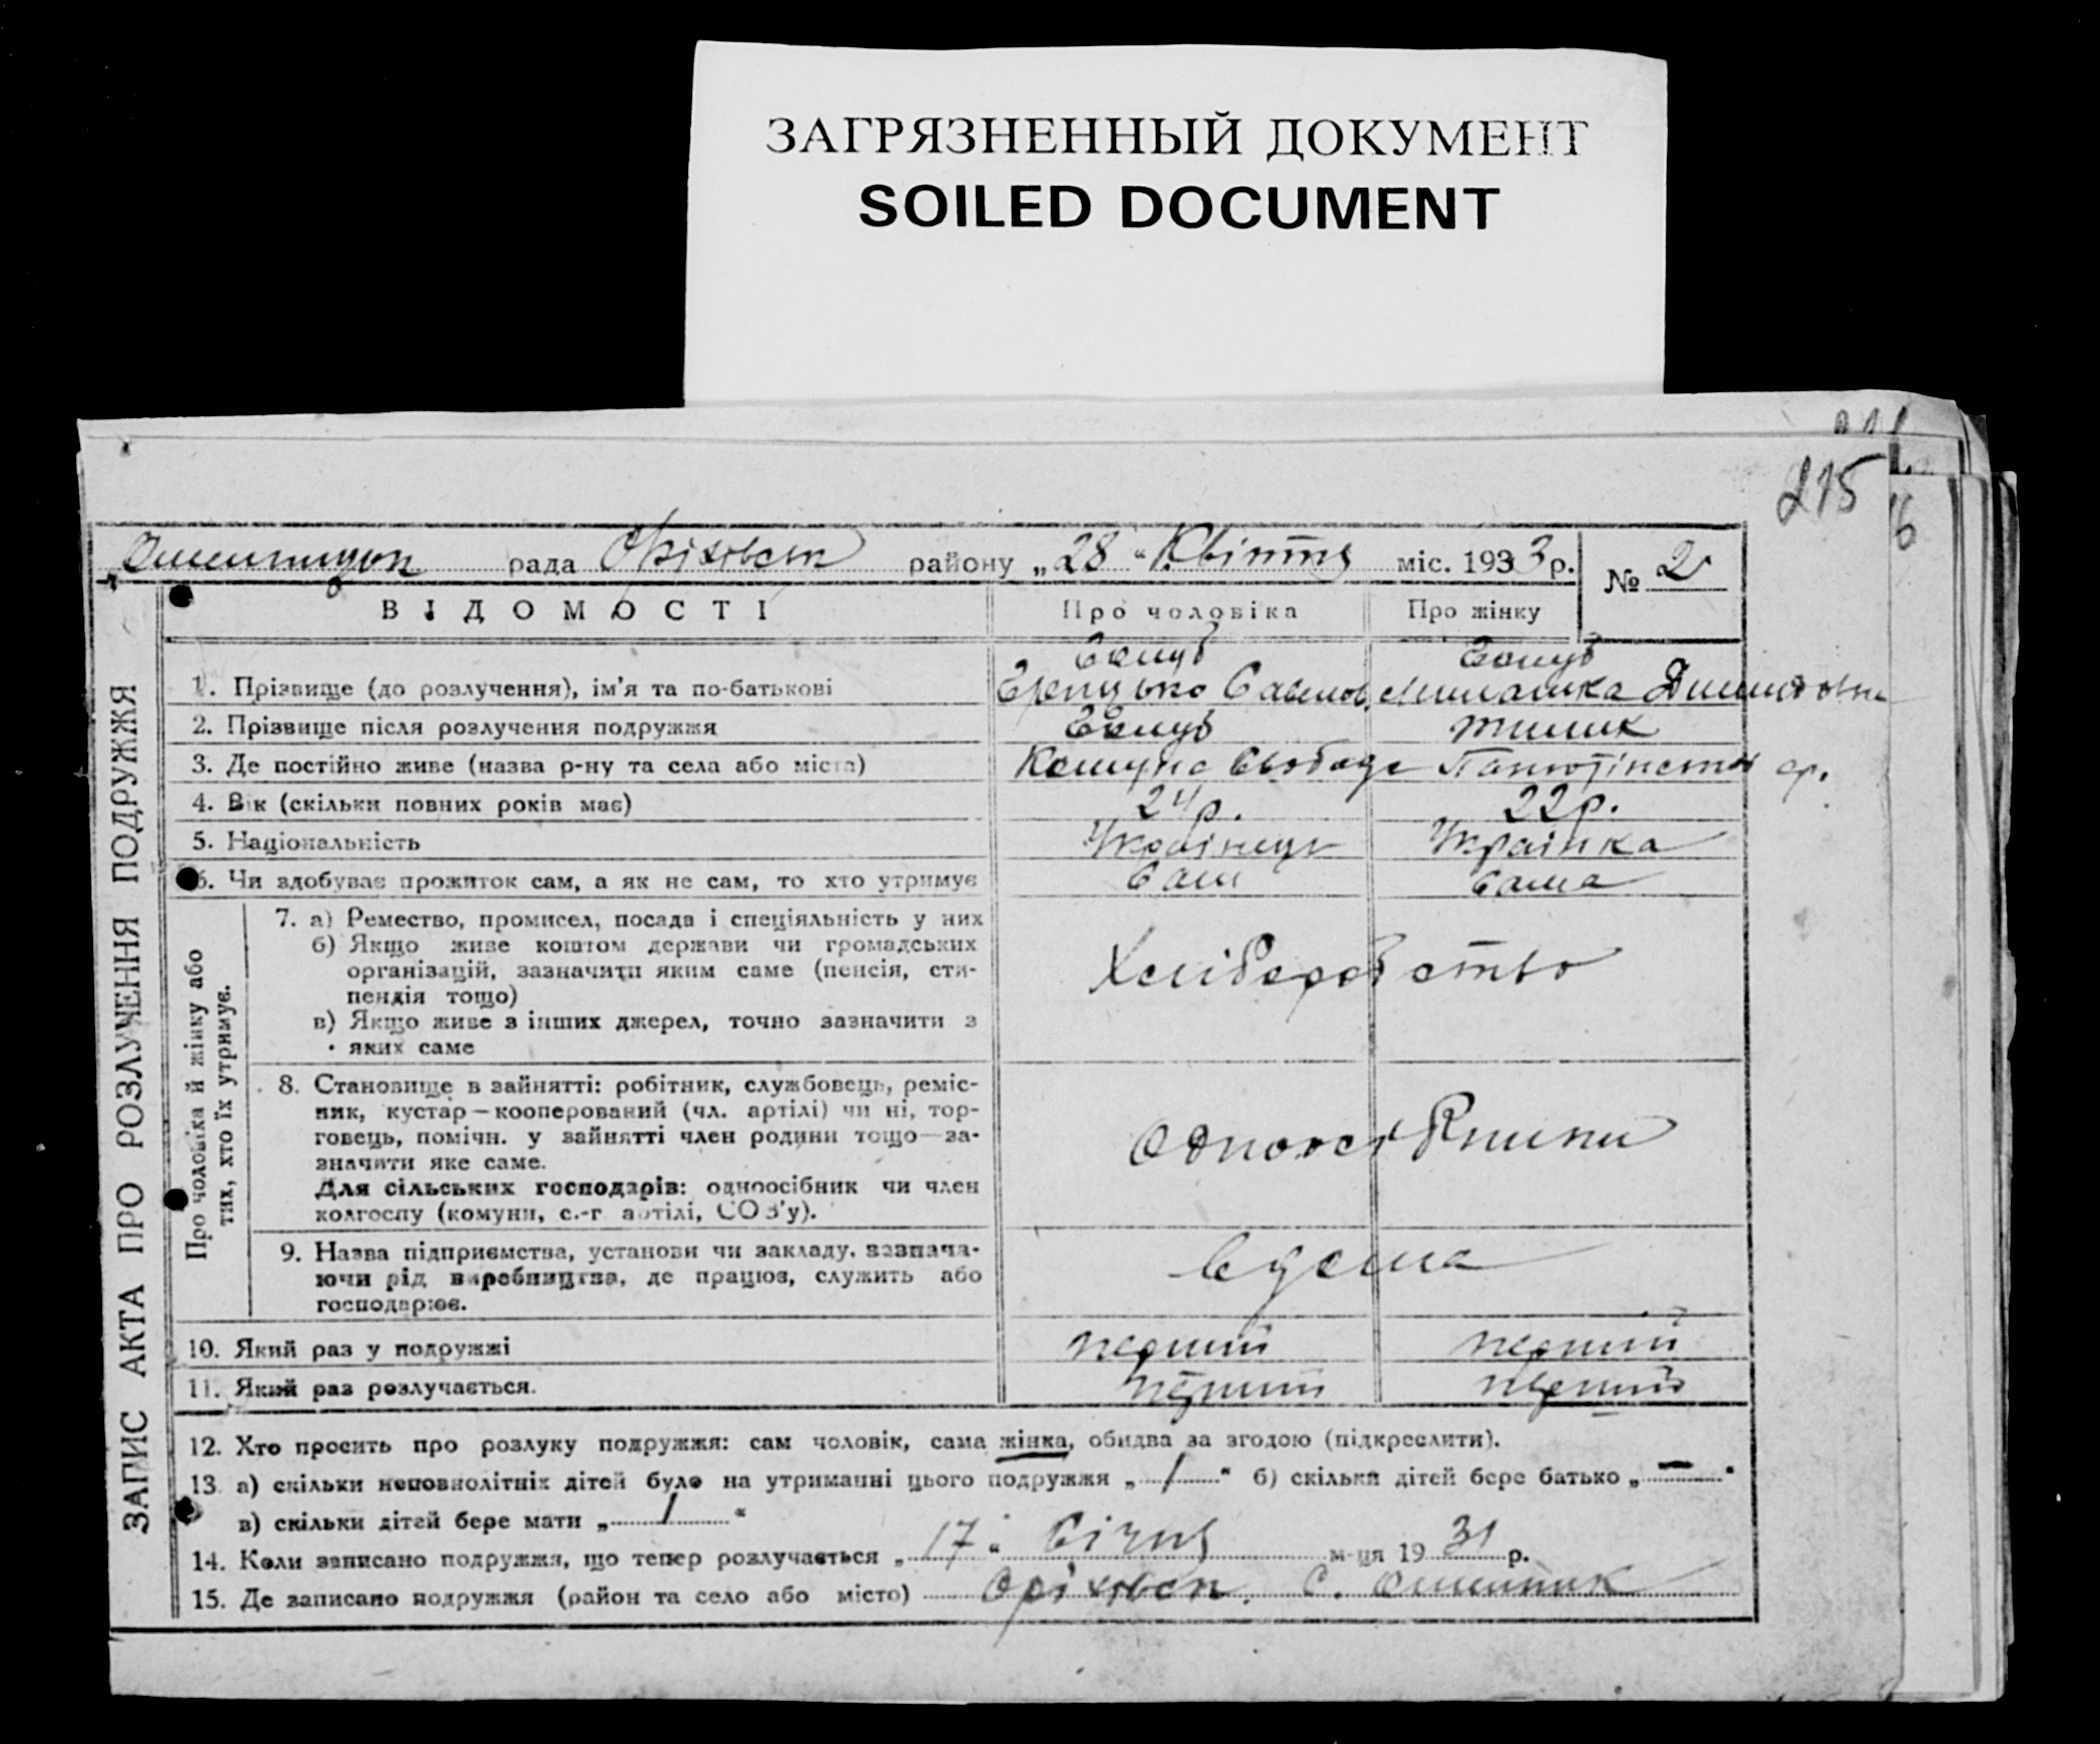 ЗАГРЯЗНЕННЫЙ ДОКУМЕНТ
SOILED DOCUMENT
215
рада Оріховск району „28“ Квітня міс. 1933 р. № 2
ВІДОМОСТІ Про чоловіка Про жінку
1. Прізвище (до розлучення), ім'я та по-батькові
2. Прізвище після розлучення подружжя
3. Де постійно живе (назва р-ну та села або міста) Комуна Свобода
4. Вік (скільки повних років має) 24 р. 22 р.
5. Національність Українець Українка
6. Чи здобуває прожиток сам, а як не сам, то хто утримує Сам Сама
Про чоловіка й жінку або
тих, хто їх утримує.
7. а) Ремество, промисел, посада і спеціяльність у них
б) Якщо живе коштом держави чи громадських
організацій, зазначити яким саме (пенсія, сти-
пендія тощо)
в) Якщо живе з інших джерел, точно зазначити з
яких саме
Хліборобство
8. Становище в зайнятті: робітник, службовець, реміс-
ник, кустар — кооперований (чл. артілі) чи ні, тор-
говець, помічн. у зайнятті член родини тощо — за-
значити яке саме.
Для сільських господарів: одноосібник чи член
колгоспу (комуни, с.-г артілі, СОЗ'у).
Одноосібники
9. Назва підприємства, установи чи закладу, зазнача-
ючи рід виробництва, де працює, служить або
господарює.
вдома
10. Який раз у подружжі перший перший
11. Який раз розлучається. перший перший
12. Хто просить про розлуку подружжя: сам чоловік, сама жінка, обидва за згодою (підкреслити).
13. а) скільки неповнолітніх дітей було на утриманні цього подружжя „1“ б) скільки дітей бере батько „—“
в) скільки дітей бере мати „1“
14. Коли записано подружжя, що тепер розлучається „17“ Січня м-ця 1931 р.
15. Де записано подружжя (район та село або місто) Оріховск. с. Омельник
ЗАПИС АКТА ПРО РОЗЛУЧЕННЯ ПОДРУЖЖЯ